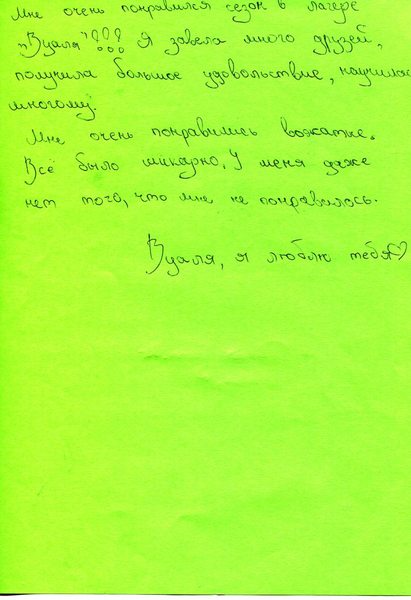 Мне очень понравился сезон в лагере
"Вуаля"!!! Я завела много друзей,
получила большое удовольствие, научилась
многому.
Мне очень понравились вожатые.
Всё было шикарно. У меня даже
нет того, что мне не понравилось.
Вуаля, я люблю тебя♡